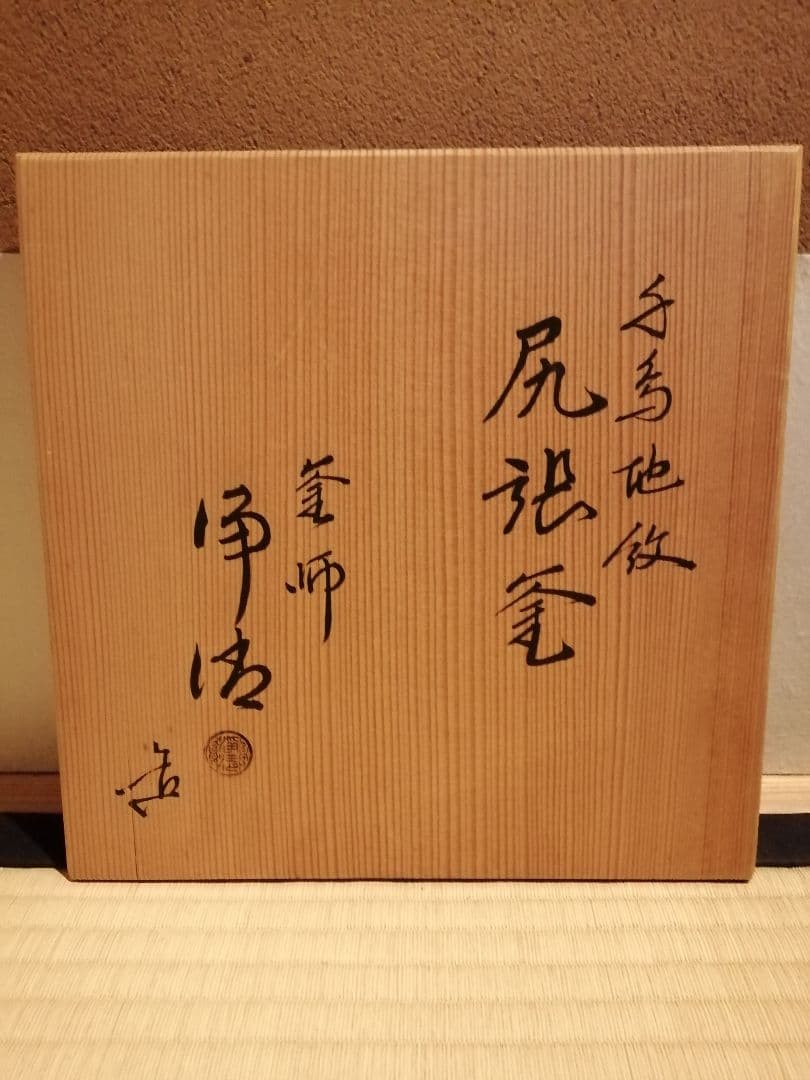 千鳥地紋
尻張釜
釜師
浄清
造